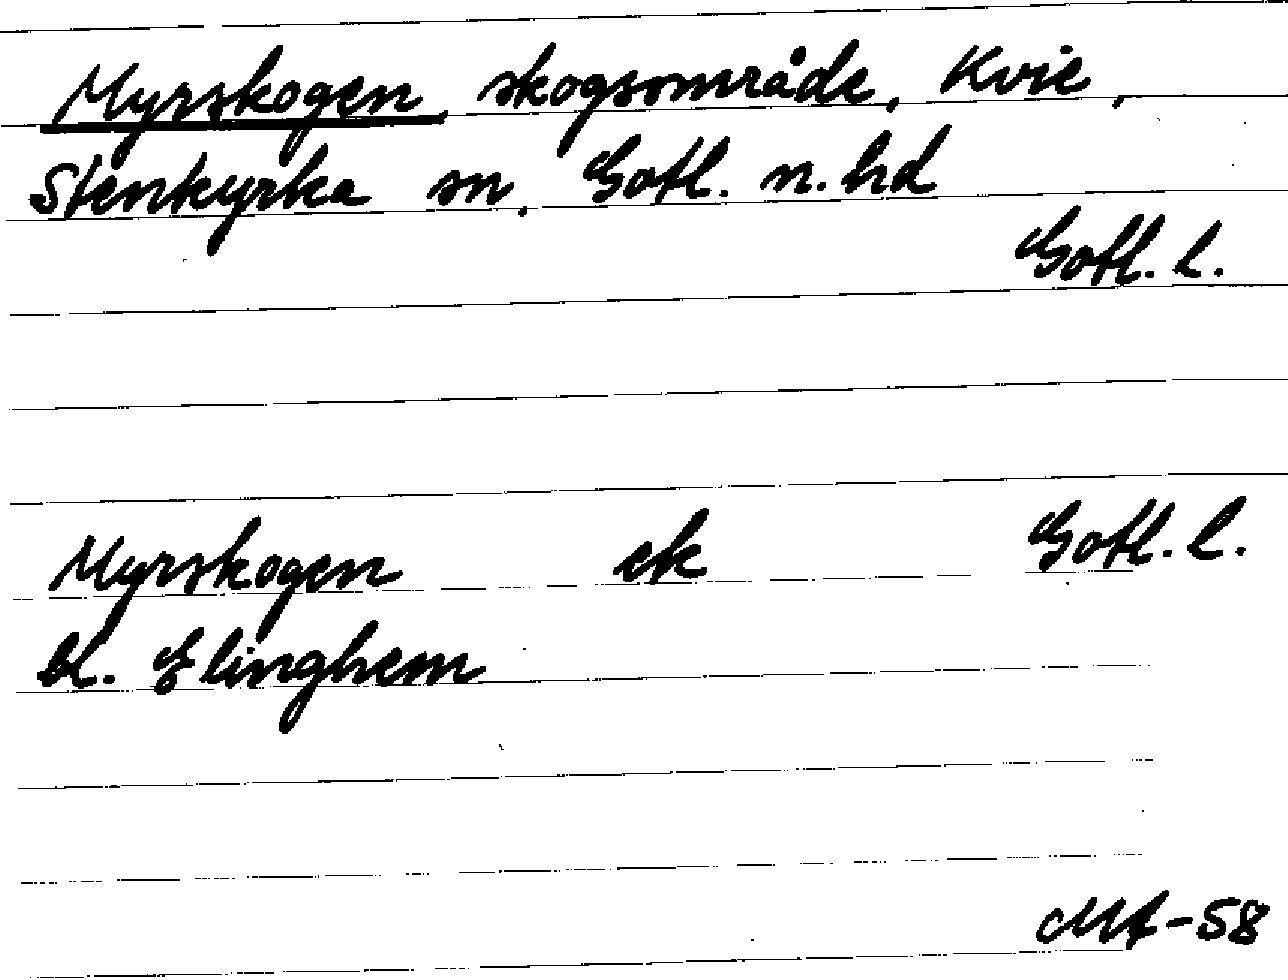 Myrskogen, skogsområde, Kvie,
Stenkyrka sn, Gotl. n. hd
Gotl. l.
Myrskogen ek Gotl. l.
bl. Elinghem